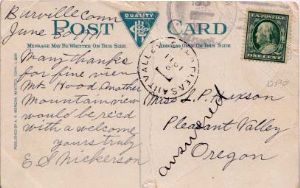 Burville Conn
June 30
POST CARD
QUALITY
MESSAGE MAY BE WRITTEN ON THIS SIDE
ADDRESS ONLY ON THIS SIDE
Many thanks
for fine view
Mt. Hood Another
Mountain view
would be rec'd
with a welcome
yours truly
E S Nickerson
PLEASANT VALLEY
1
Miss L. P. Huxson
Pleasant Valley
Oregon
answered
ONE CENT